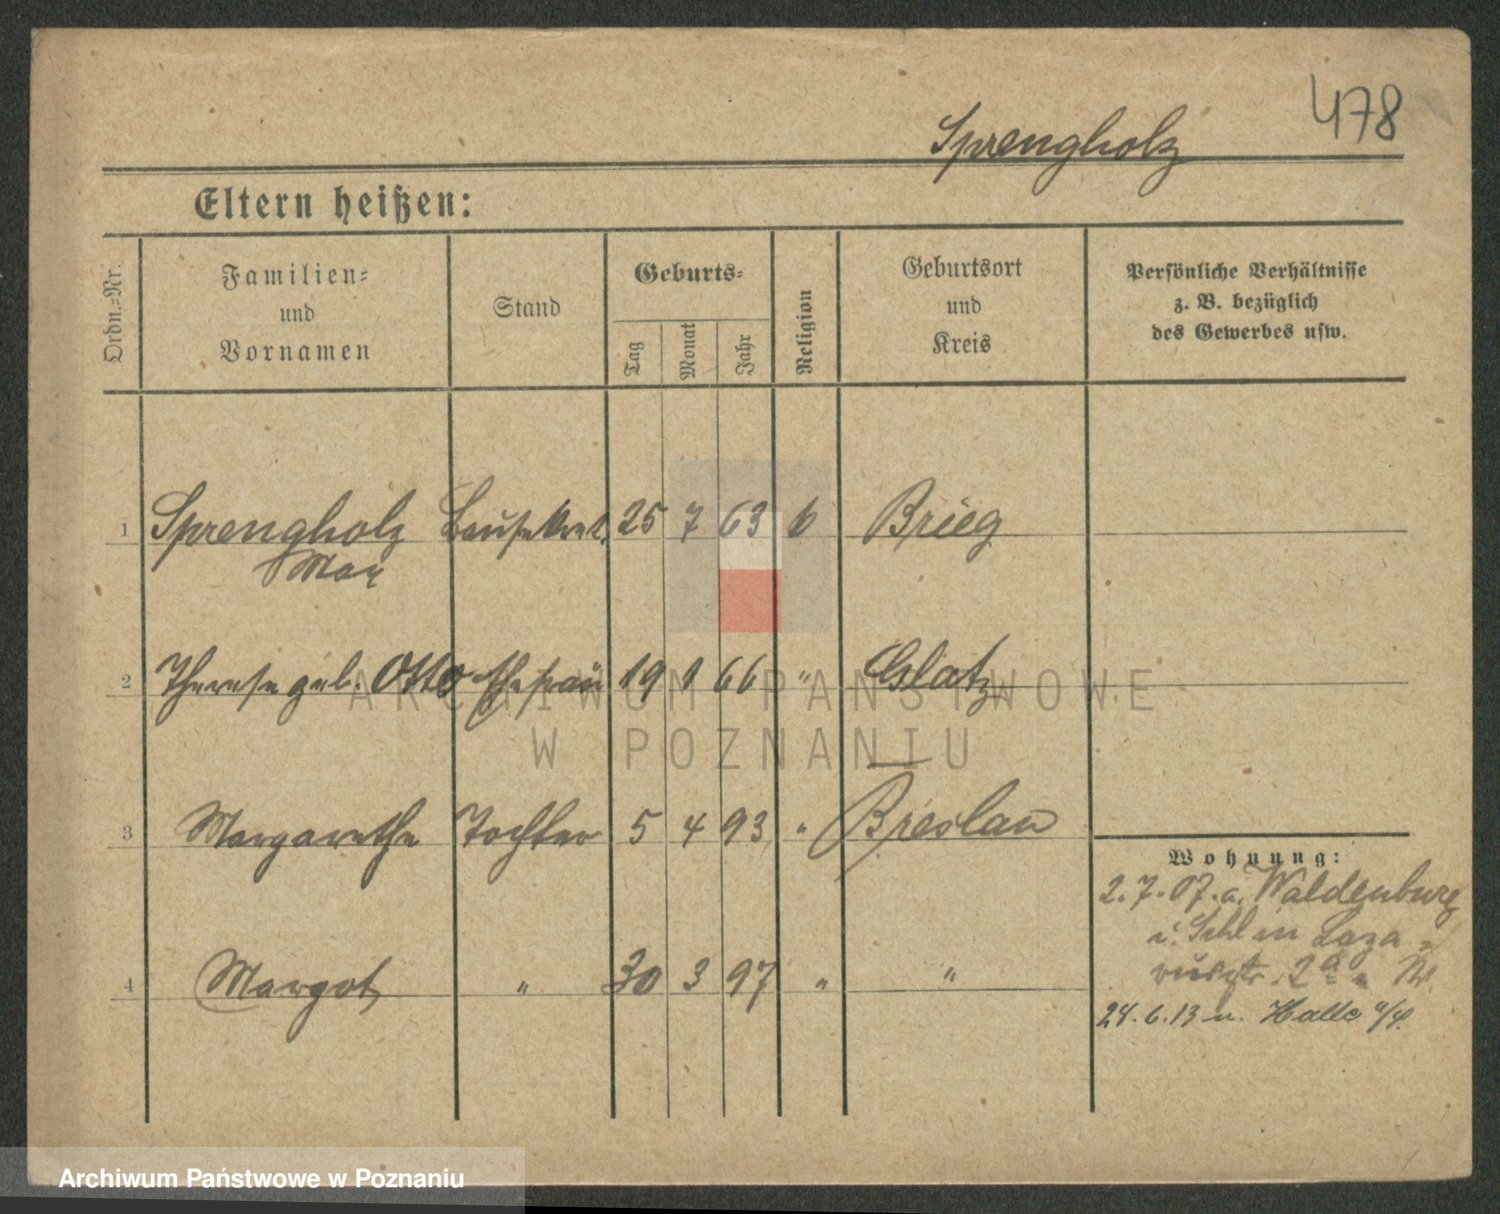 478
Sprengholz
Eltern heißen:
Ordn.=Nr.
Familien=
und
Vornamen
Stand
Geburts=
Tag
Monat
Jahr
Religion
Geburtsort
und
Kreis
Persönliche Verhältnisse
z. B. bezüglich
des Gewerbes usw.
1 Sprengholz 25 7 63 Brieg
Max
2 Therese geb. Otto Ehefrau 19 1 66 " Glatz
ARCHIWUM PAŃSTWOWE
W POZNANIU
3 Margarethe Tochter 5 4 93 " Breslau
Wohnung:
2.7.07. a. Waldenburg
i. Schl in Laza=
4 Margot " 30 3 97 " "
24.6.13 n. Halle a/S.
Archiwum Państwowe w Poznaniu